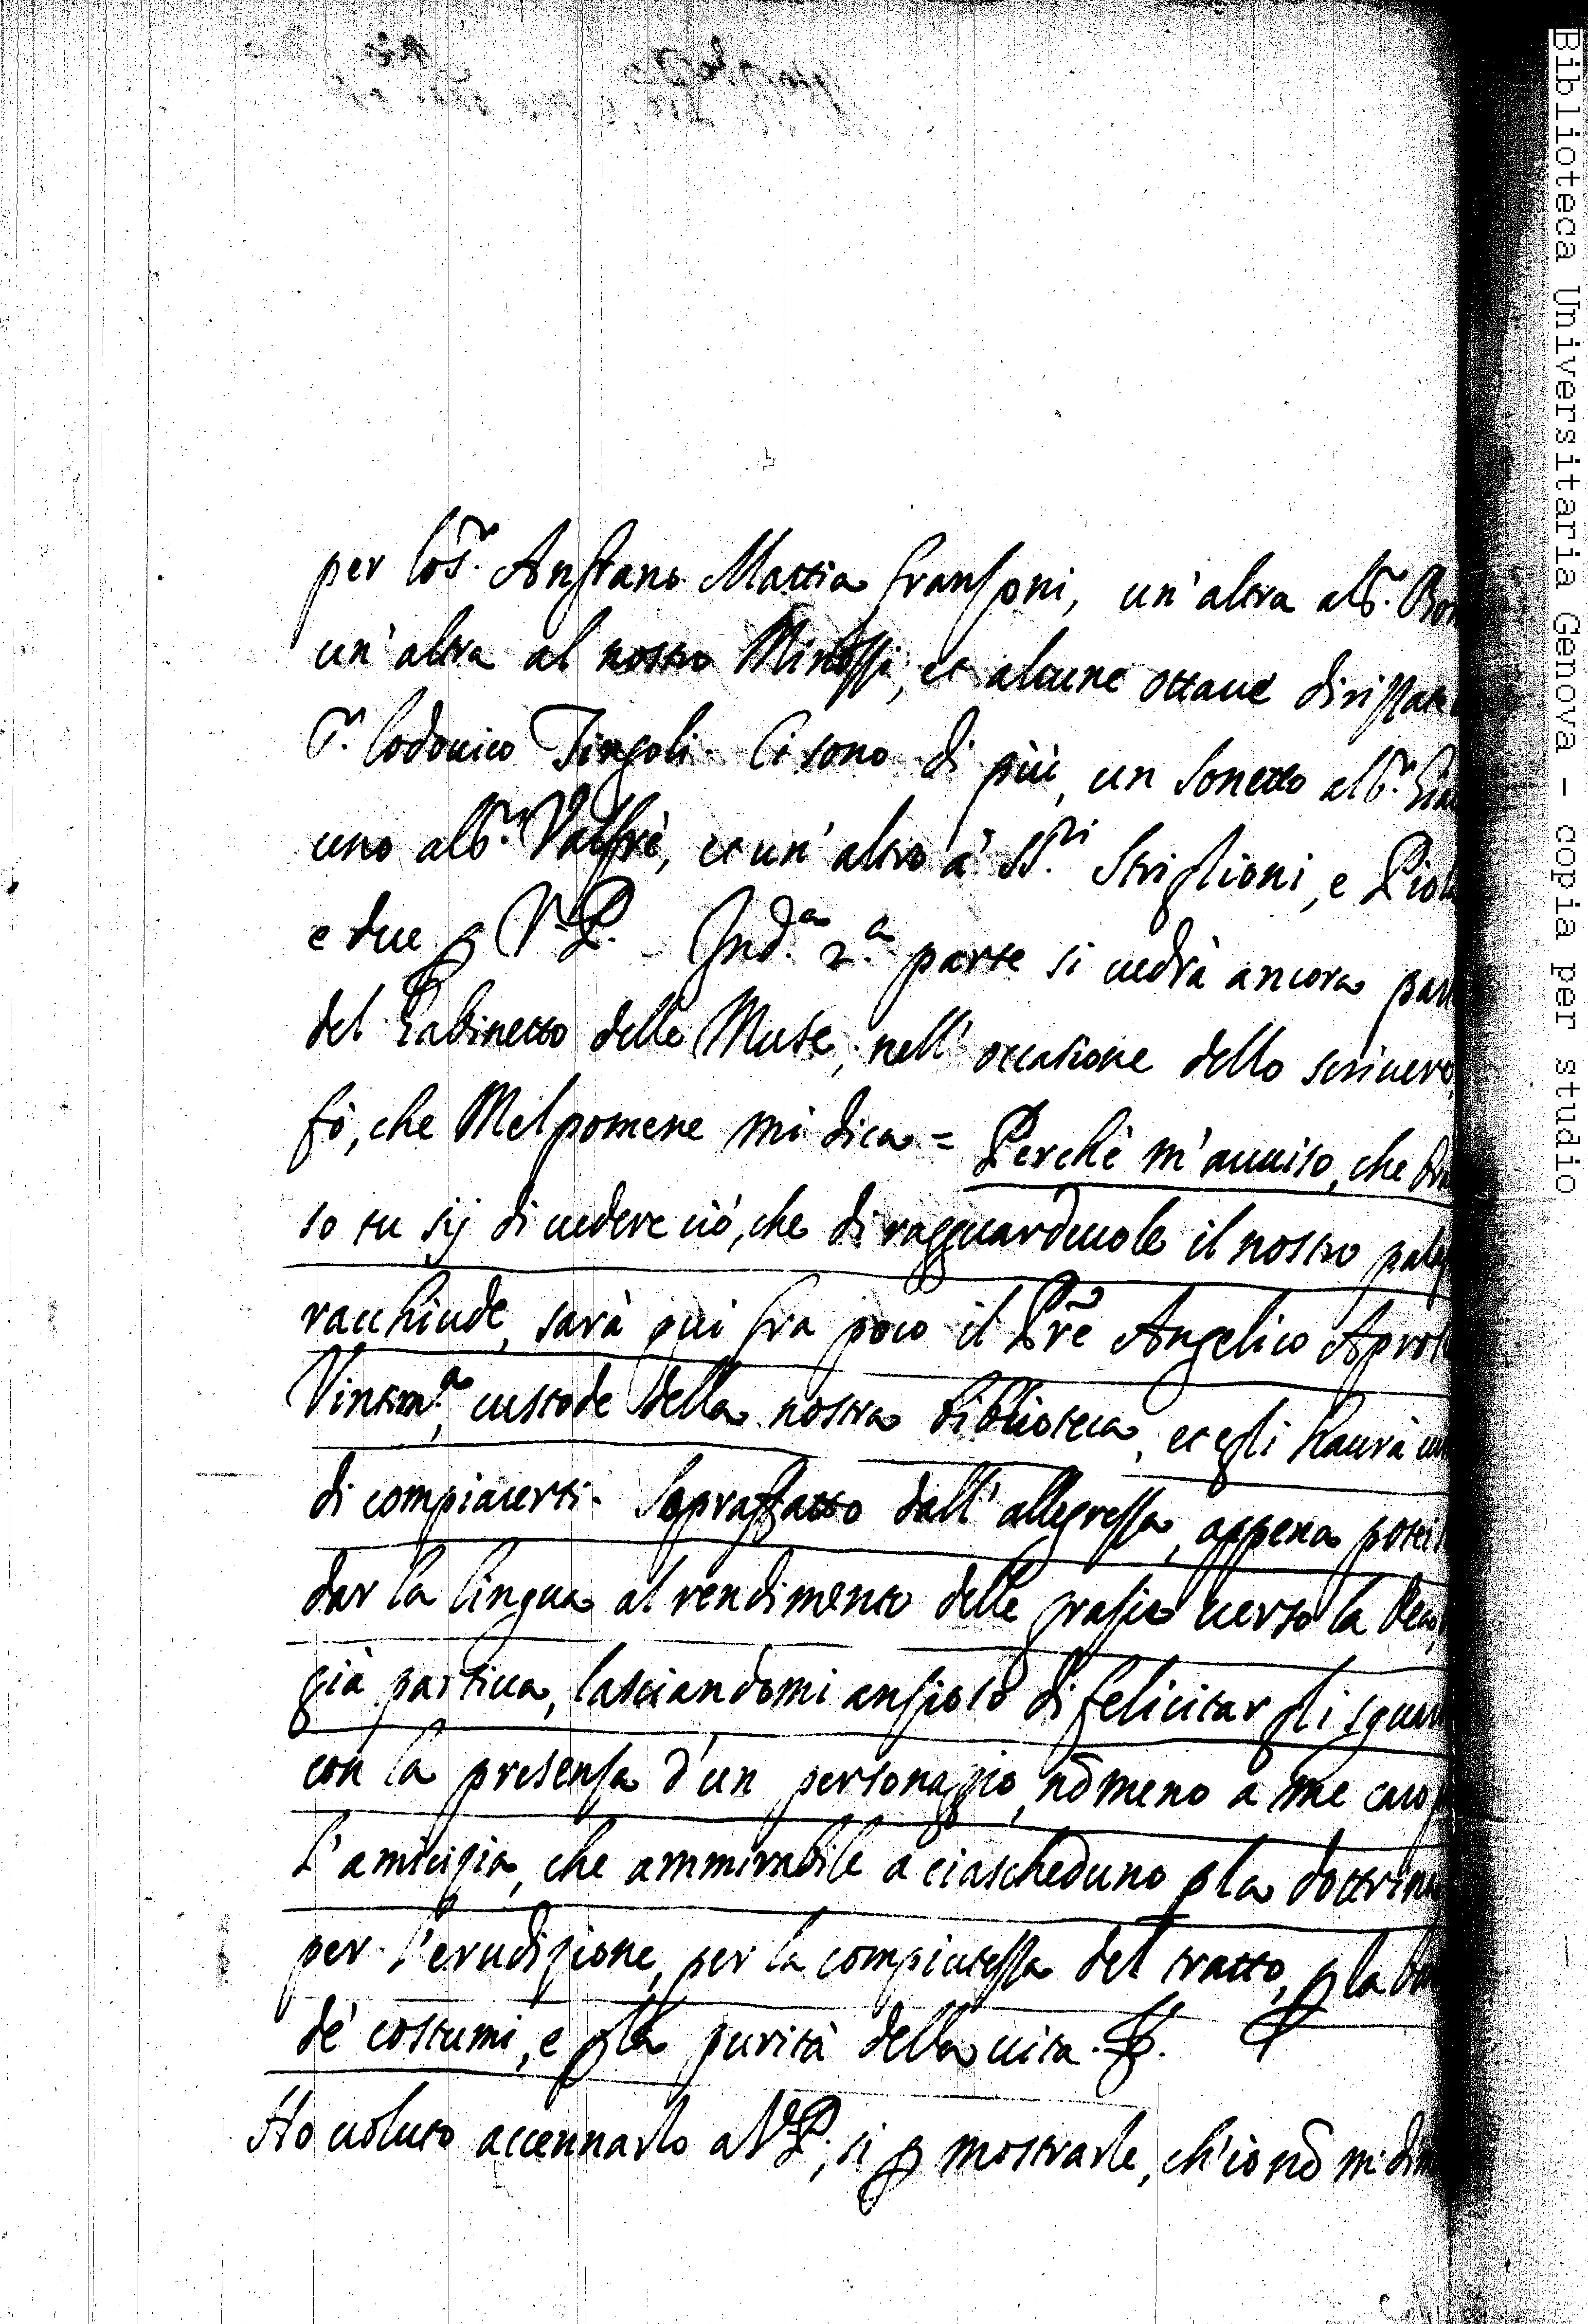 per lo S.r Anstano Mattia Fransoni, un'altra al S.r
un'altra al nostro Minossi, et alcune ottaue
S.r Lodouico Tingoli. Ci sono di più, un Sonetto al S.r
uno al S.r Valfrè, et un'altro à SS.ri Striglioni, e
e due p V. P. In d.a 2.a parte si uedrà ancora
del Gabinetto delle Muse; nell'occasione dello scriuere
fò, che Melpomene mi dica = Perchè m'auuiso, che
so tu sij di uedere ciò, che di ragguardeuole il nostro
racchiude, sarà qui fra poco il Pre Angelico
Vintim.a, custode della nostra biblioteca, et egli haurà
di compiacerti. Sopraffatto dall'allegrezza, appena
dar la lingua al rendimento delle grazie uerso la Dea,
già partita, lasciandomi ansioso di felicitar gli
con la presenza d'un personaggio, nõ meno a me caro
l'amicizia, che ammirabile a ciascheduno p la dottrina
per l'erudizione, per la compiutezza del tratto, p la
de' costumi, e p la purità della uita.
Ho uoluto accennarlo a V. P., si p mostrarle, ch'io nõ mi
Biblioteca Universitaria Genova - copia per studio